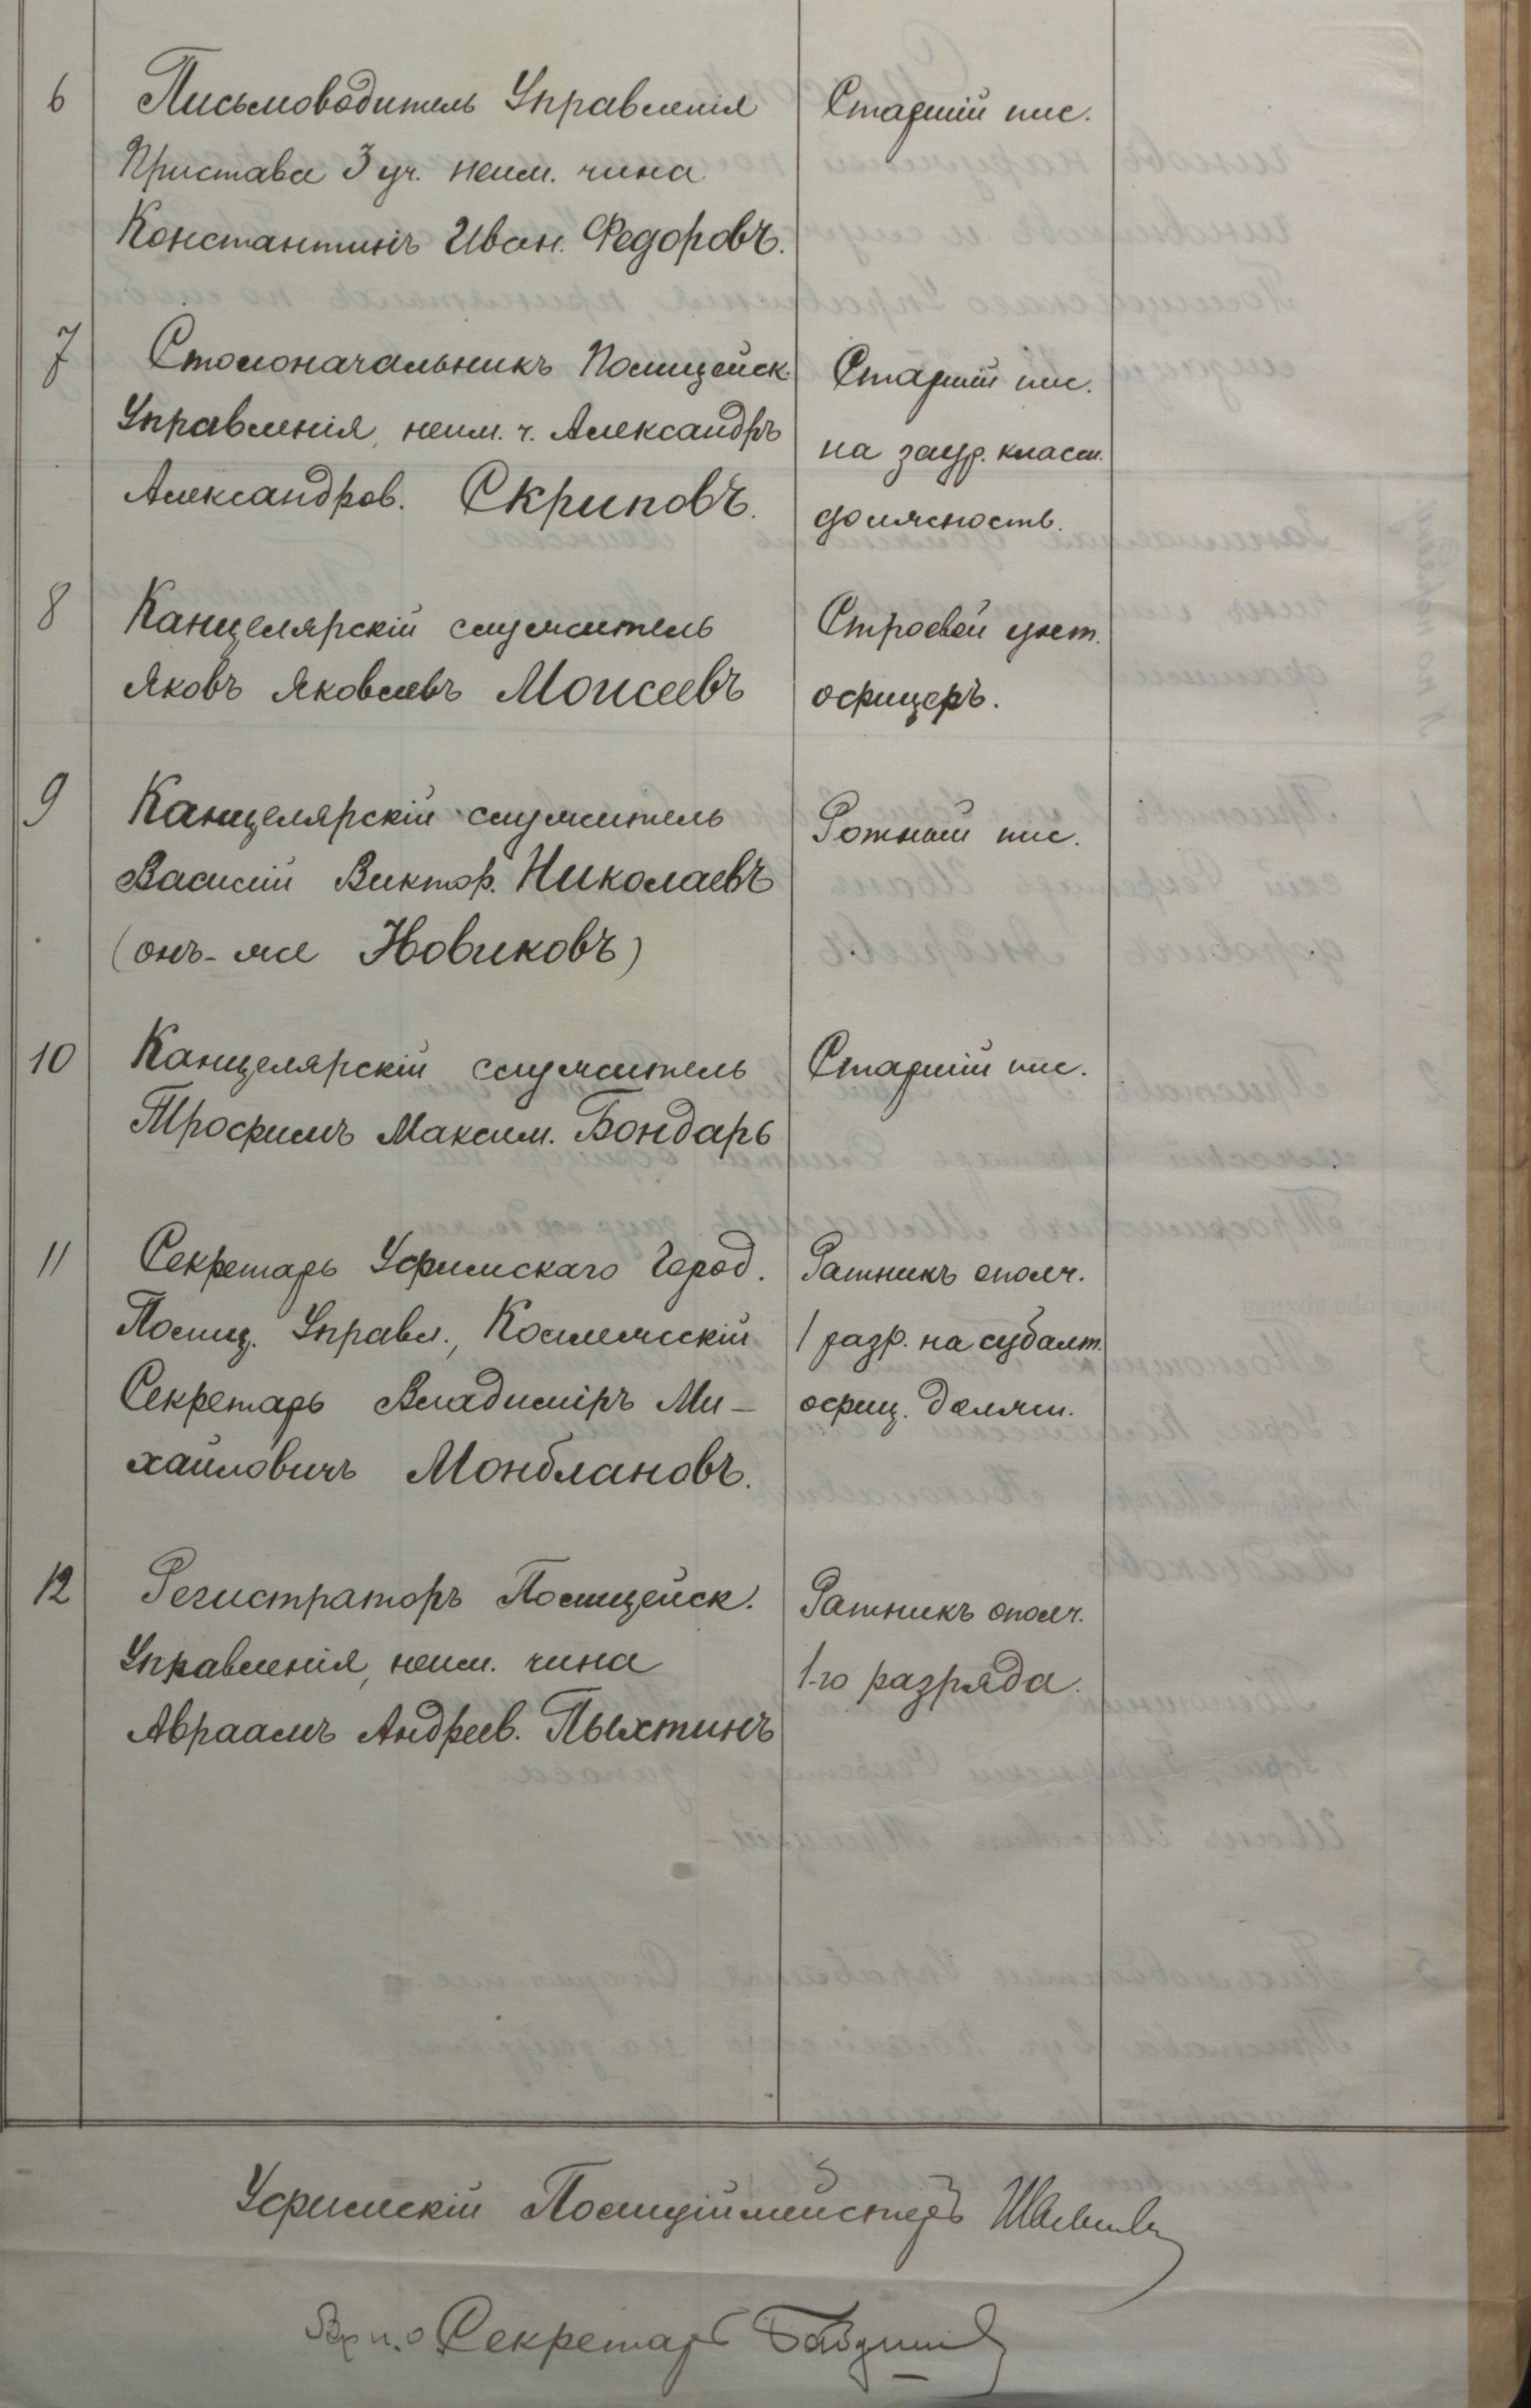 6 Письмоводитель Управленія
Пристава 3 уч. неим. чина
Константинъ Иван. Федоровъ.
Старшій пис.
7 Столоначальникъ Полицейск.
Управленія, неим. ч. Александръ
Александров. Скриповъ.
Старшій пис.
на заур. классн.
должность.
8 Канцелярскій служитель
Яковъ Яковлевъ Моисеевъ
Строевой унт.
офицеръ.
9 Канцелярскій служитель
Василій Виктор. Николаевъ
(онъ-же Новиковъ)
Ротный пис.
10 Канцелярскій служитель
Трофимъ Максим. Бондарь
Старшій пис.
11 Секретарь Уфимскаго Город.
Полиц. Управл., Коллежскій
Секретарь Владиміръ Ми-
хайловичъ Монблановъ.
Ратникъ ополч.
1 разр. на субалт.
офиц. должн.
12 Регистраторъ Полицейск.
Управленія, неим. чина
Авраамъ Андреев. Пыхтинъ
Ратникъ ополч.
1-го разряда.
Уфимскій Полиціймейстеръ
Вр. и. о. Секретарь